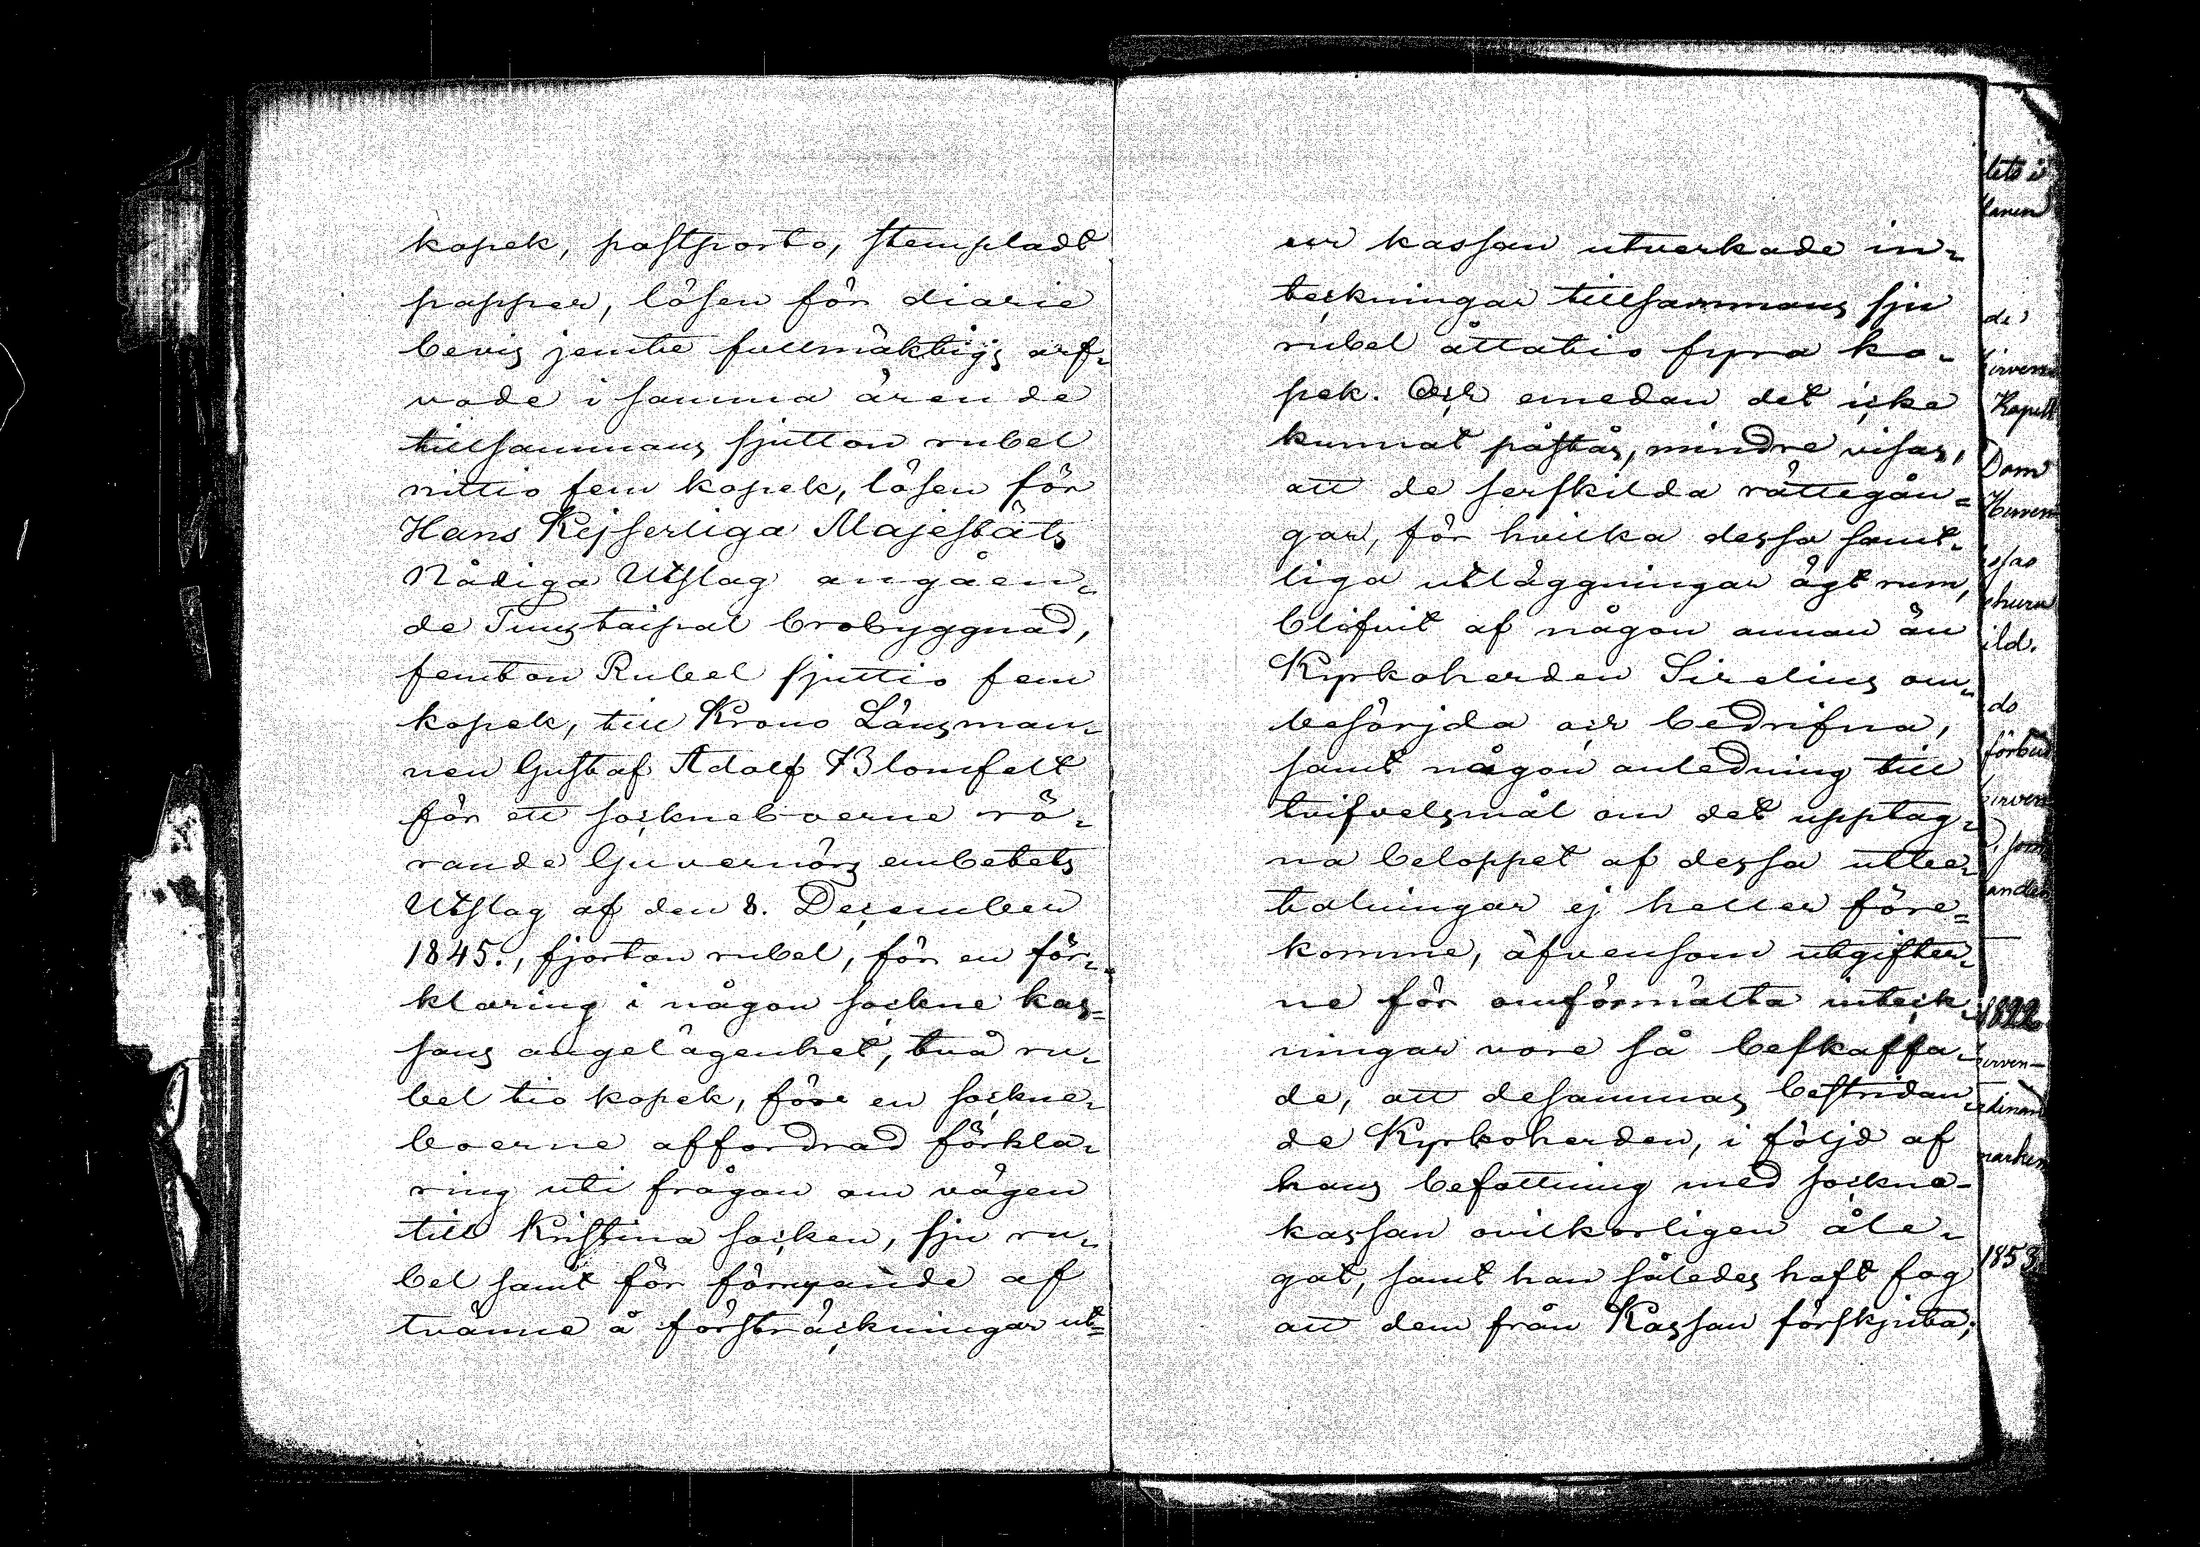 kopek, postporto, stempladt
papper, lösen för diarie
bevis jemte fullmäktigs arf-
vode i samma ären de
tillsammans sjutton rubel
nittio fem kopek, lösen för
Hans Kejserliga Majestäts
Nådiga Utslag angåen-
de Tuustaipal brobyggnad,
femton Rubel sjuttio fem
kopek, till Krono Länsman-
nen Gustaf Adolf Blomfelt
för ett sockneboerne rö-
rande Guvernörs embetets
Utslag af den 8. December
1845., fjorton rubel, för en för-
klaring i någon sockne kas-
sans angelägenhet, två ru-
bel tio kopek, före en sockne-
boerne affordrad förkla-
ring uti frågan om vägen
till Kristina socken, sju ru-
bel samt för förnyande af
tvänne å försträckningar ut-
ur kassan utverkade in-
teckningar tillsammans sju
rubel åttatio fyra ko-
pek. Och emedan det icke
kunnat påstås, mindre visas,
att de serskilda rättegån-
gar, för hvilka dessa samt-
liga utläggningar ägt rum,
blifvit af någon annan än
Kyrkoherden Sirelius om-
besörjda och bedrifna,
samt någon anledning till
tvifvelsmål om det upptag-
na beloppet af dessa utbe-
talningar ej heller före-
komme, äfvensom utgifter-
ne för omförmälta inteck-
ningar vore så beskaffa-
de, att desammas bestridan-
de Kyrkoherden, i följd af
hans befattning med sockne-
kassan ovilkorligen åle-
gat, samt han således haft fog
att dem från Kassan förskjuta;
Kapell
Dom
ild.
do
förbud
1822
1853